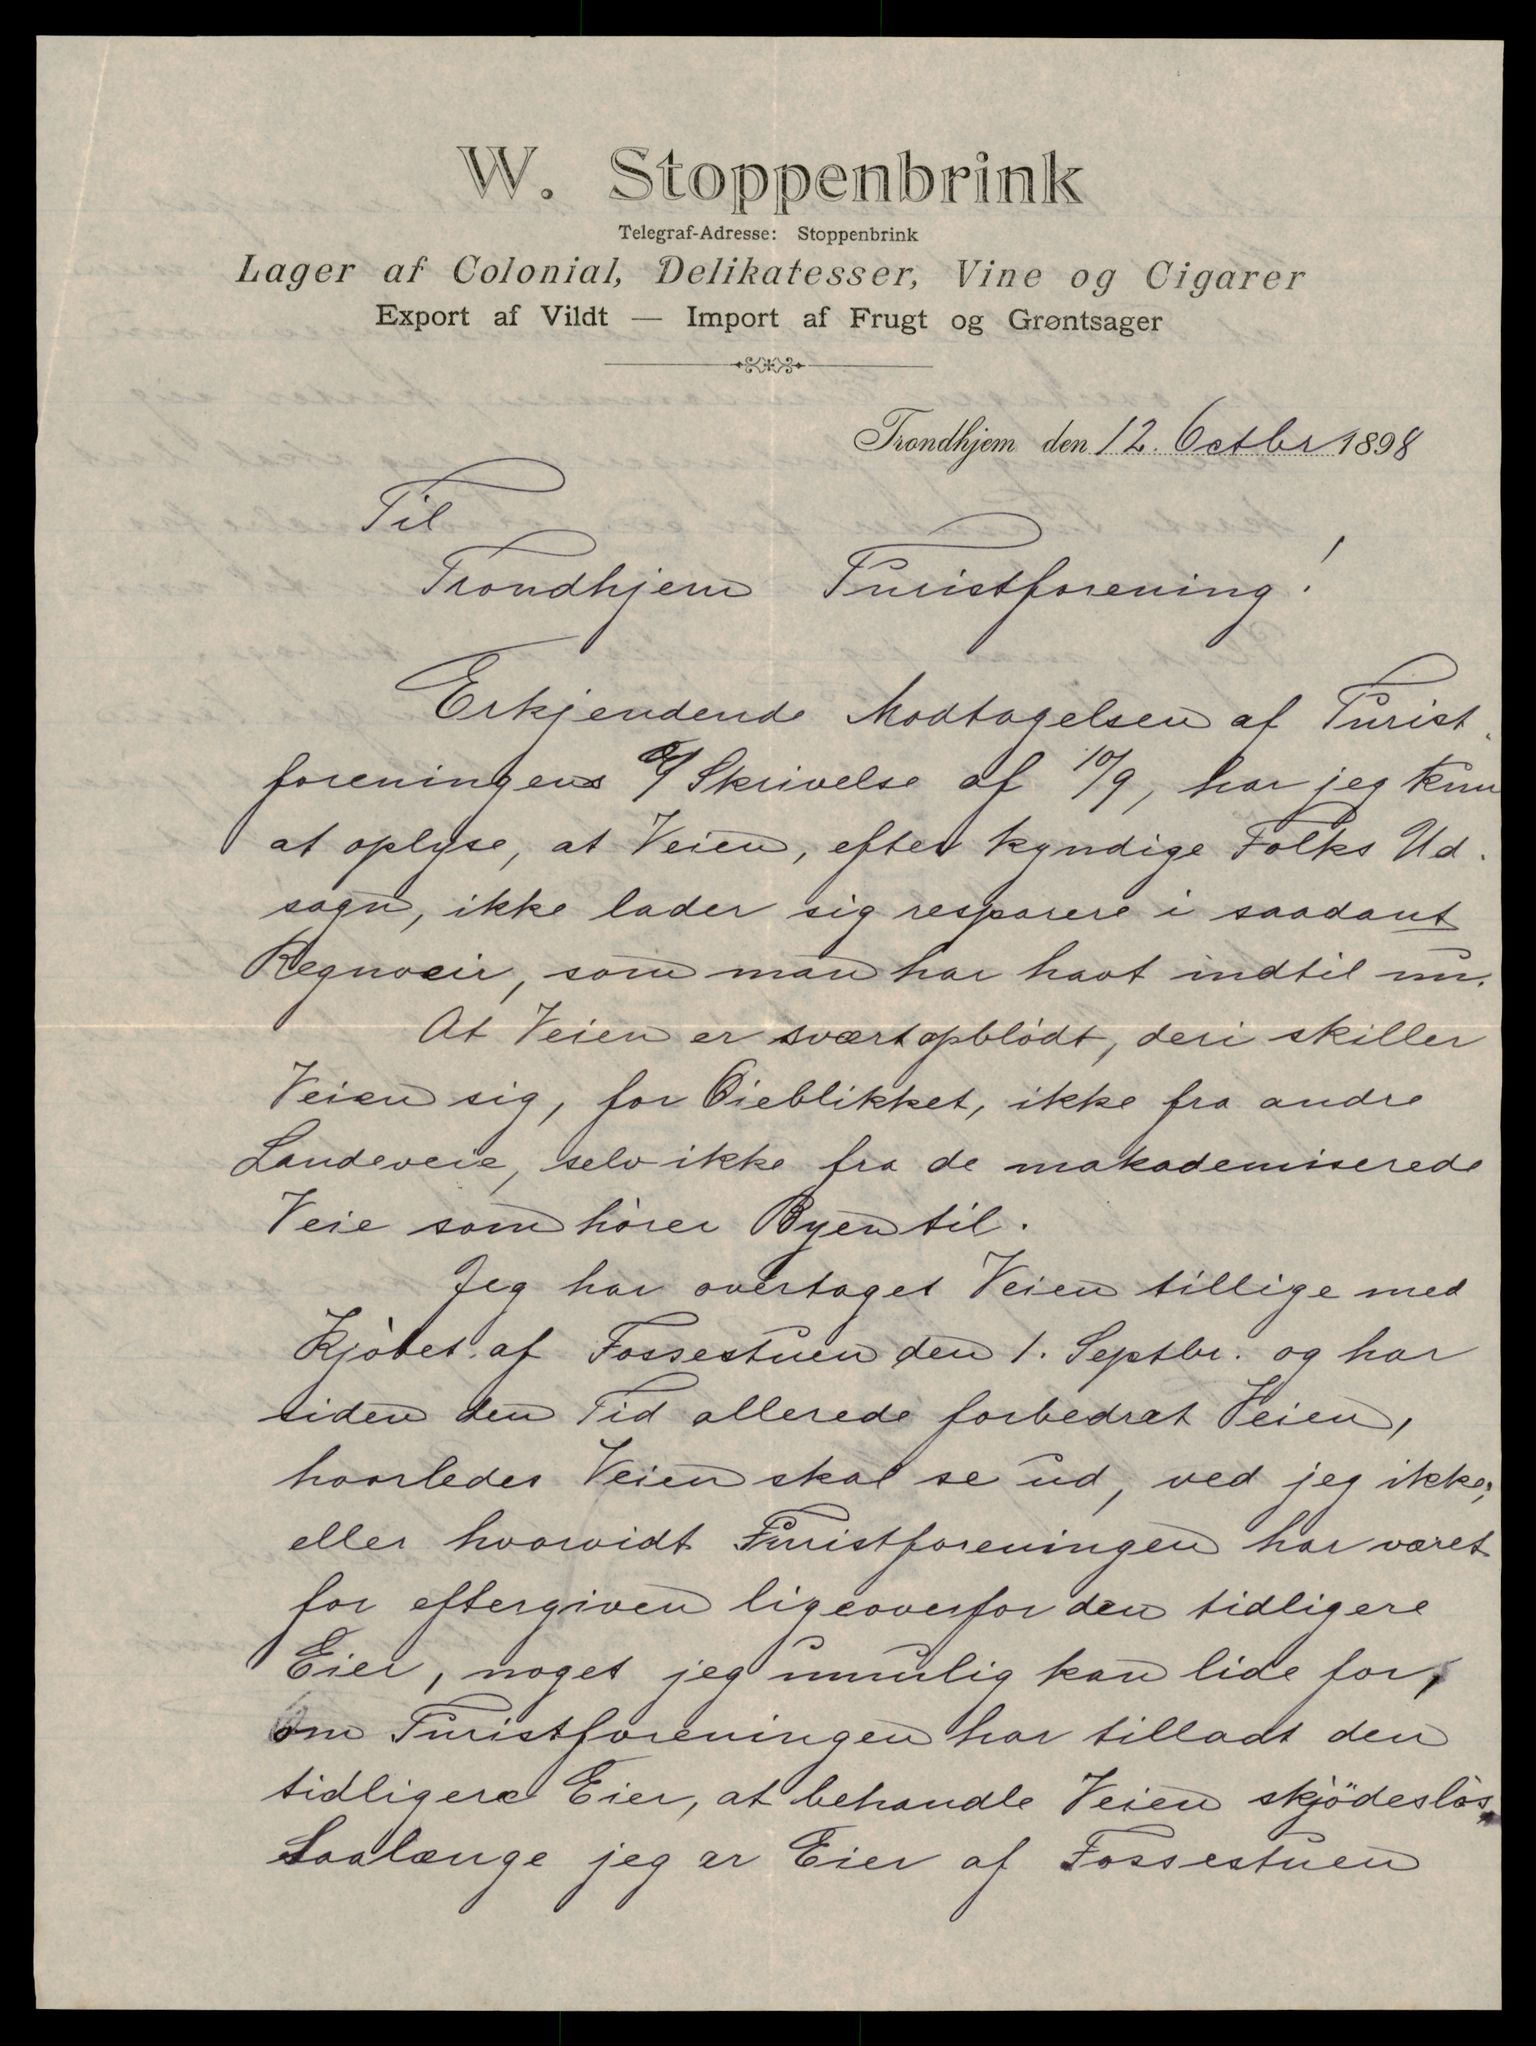 W. Stoppenbrink
Telegraf-Adresse: Stoppenbrink
Lager af Colonial, Delikatesser, Vine og Cigarer
Export af Vildt — Import af Frugt og Grøntsager
Trondhjem den 12. Octbr 1898
Til
Trondhjem Turistforening!
Erkjendende Modtagelsen af Turist-
foreningens Skrivelse af 10/9, har jeg kun
at oplyse, at Veien, efter kyndige Folks Ud-
sagn, ikke lader sig resparere i saadant
Regnveir, som man har havt indtil nu.
At Veien er svært opblödt, deri skiller
Veien sig, for Öieblikket, ikke fra andre
Landeveie, selv ikke fra de makademiserede
Veie som hörer Byen til.
Jeg har overtaget Veien tillige med
Kjöbet af Fossestuen den 1. Septbr. og har
siden den Tid allerede forbedret Veien,
hvorledes Veien skal se ud, ved jeg ikke,
eller hvorvidt Turistforeningen har været
for eftergiven ligeoverfor den tidligere
Eier, noget jeg umulig kan lide for,
om Turistforeningen har tilladt den
tidligere Eier, at behandle Veien skjödeslös.
Saalænge jeg er Eier af Fossestuen